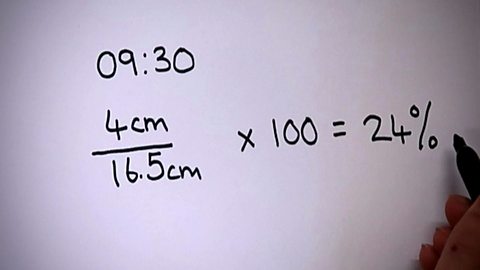 09:30
4cm
16.5cm × 100 = 24%